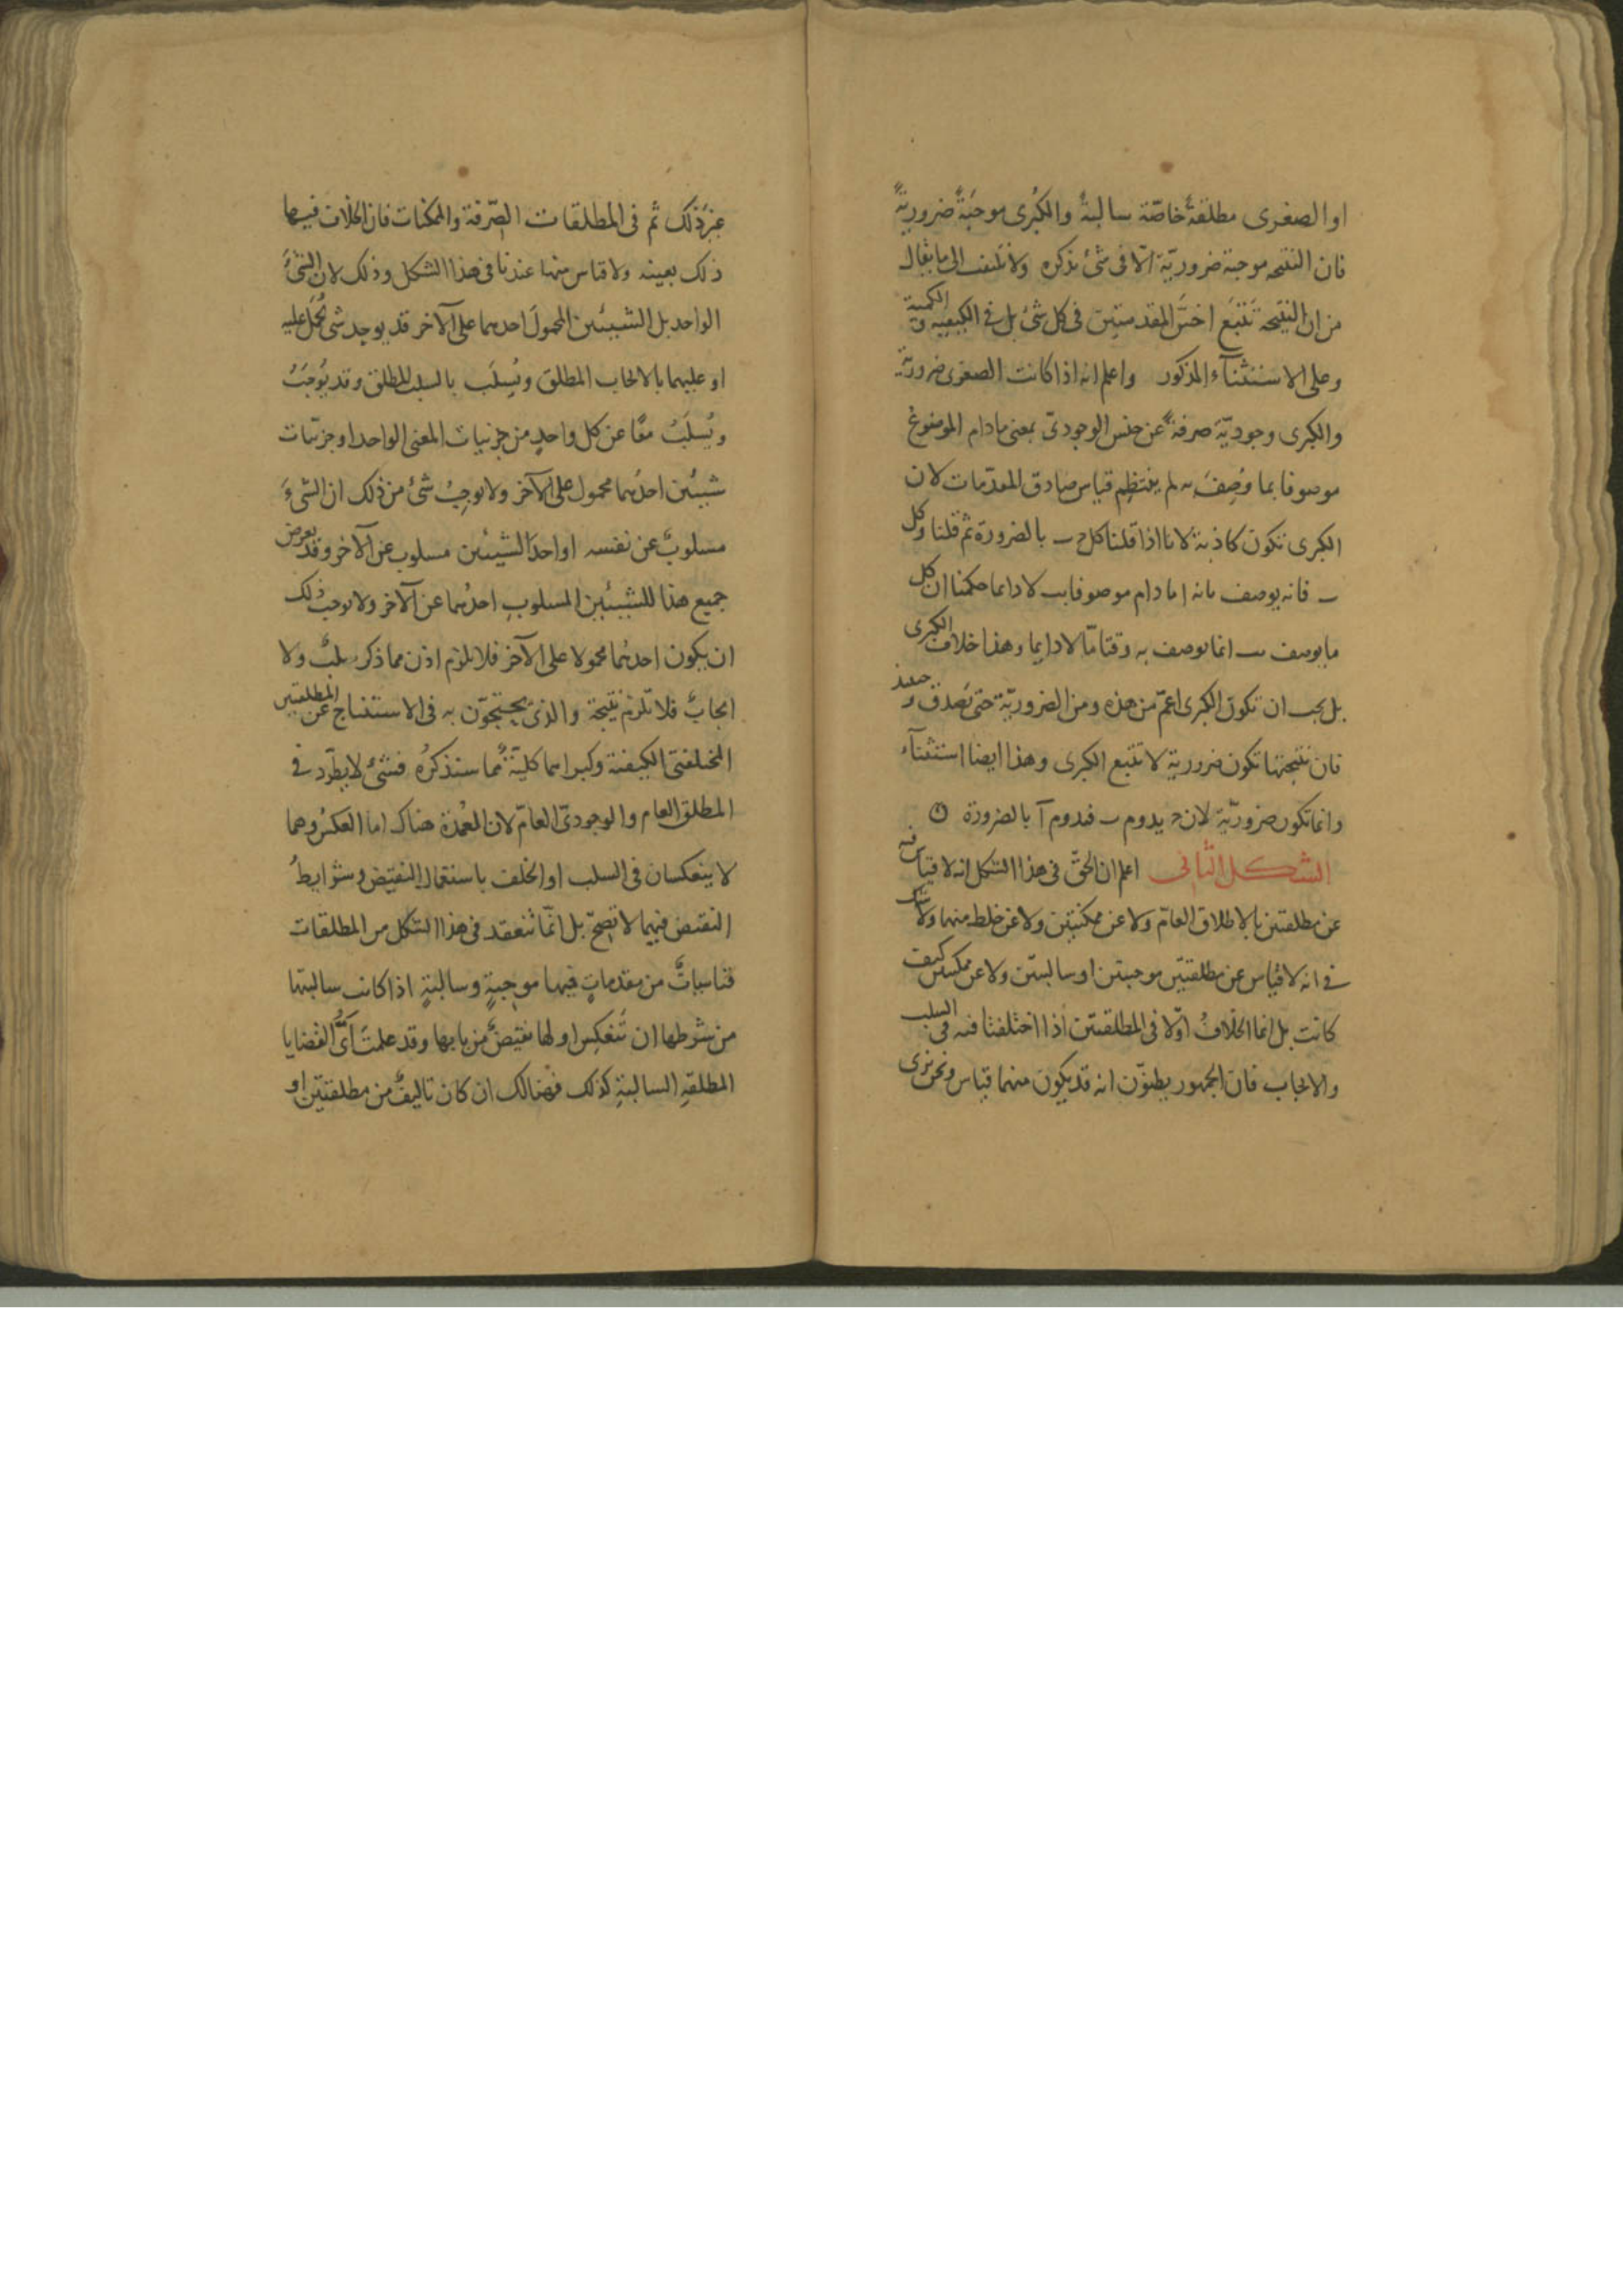 او الصغرى مطلقةٌ خاصّة سالبةٌ والكبرى موجبةٌ ضروريةً
فان النتيجه موجبة ضروريّة الّا فى شئ نذكره ولا تلتفت الى ما يقال
من ان النتيجه تتبَع اخسّ المقدمتين فى كل شئ بل فى الكيفيه والكمية
وعلى الاستثنآء المذكور واعلم انه اذا كانت الصغرى ضروريّة
والكبرى وجوديّة صرفةً عن جنس الوجودىّ بمعنى مادام الموضوعُ
موصوفا بما وُصِفَ به لم ينتظِم قياس صادق المقدّمات لان
الكبرى تكون كاذبة لانا اذا قلنا كل حـ ب بالضرورة ثم قلنا وكل
ب فانه يوصف بانه ا ما دام موصوفا بب لا دايما حكمنا ان كل
ما يوصف بب انما يوصف به وقتا مّا لا دايما وهذا خلاف الكبرى
بل يجب ان تكون الكبرى اعمّ من هذه ومن الضروريّة حتى تصدق وحينئذ
فان نتيجتها تكون ضرورية لا تتبع الكبرى وهذا ايضا استثنآء
وانما تكون ضروريّة لان حـ يدوم ب فيدوم آ بالضرورة ۞
الشكل الثانى اعلم ان الحقّ فى هذا الشكل انه لا قياس فيه
عن مطلقتين بالاطلاق العامّ ولا عن ممكنتين ولا عن خلط منهما ولا شك
فى انه لا قياس عن مطلقتين موجبتين او سالبتين ولا عن ممكنتين كيف
كانت بل انما الخلافُ اوّلا فى المطلقتين اذا اختلفتا فيه فى السلب
والايجاب فان الجمهور يظنّون انه قد يكون منهما قياس ونحن نرى
غيرَ ذلك ثم فى المطلقات الصِّرفة والممكنات فان الخلاف فيهما
ذلك بعينه ولا قياس منهما عندنا فى هذا الشكل وذلك لان الشئَ
الواحد بل الشيئين المحمولَ احدهما على الآخر قد يوجد شئ يُحمَل عليه
او عليهما بالايجاب المطلق ويُسلَب بالسلب المطلق وقد يُوجَبُ
ويُسلَبُ معًا عن كل واحدٍ من جزئيات المعنى الواحد او جزئيات
شيئين احدُهما محمول على الآخر ولا يوجِبُ شئ من ذلك ان الشئَ
مسلوبٌ عن نفسه او احدَ الشيئين مسلوب عن الآخر وقد يعرض
جميع هذا للشيئين المسلوبِ احدُهما عن الآخر ولا يوجب ذلك
ان يكون احدُهما محمولا على الآخر فلا يلزم اذن مما ذكر سلبٌ ولا
ايجابٌ فلا تلزم نتيجة والذى يحتجّون به فى الاستنتاج عن المطلقتين
المختلفتى الكيفية وكبراهما كليّةٌ مما سنذكرُه فشئ لا يطّرد فى
المطلق العام والوجودىّ العامّ لان العُمدة هناك اما العكسُ وهما
لا ينعكسان فى السلب او الخلف باستعمال النقيض وشرايطُ
النقيض فيهما لا تصِحّ بل انّما تنعقد فى هذا الشكل من المطلقات
قياساتٌ من مقدماتٍ فيها موجبةٍ وسالبةٍ اذا كانت سالبتها
من شرطها ان تنعكِس او لها نقيضٌ من بابها وقد علمتَ اَىُّ القضايا
المطلقةِ السالبةِ كذلك فهنالك ان كان تاليفٌ من مطلقتين او